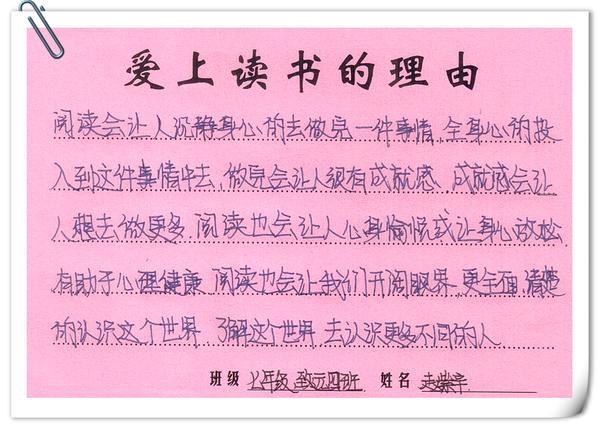 爱上读书的理由
阅读会让人沉静身心的去做完一件事情,全身心的投
入到这件事情中去,做完会让人很有成就感,成就感会让
人想去做更多,阅读也会让人心身愉悦或让身心放松,
有助于心理健康,阅读也会让我们开阔眼界,更全面,清楚
的认识这个世界,了解这个世界,去认识更多不同的人
班级 七年级 致远四班 姓名